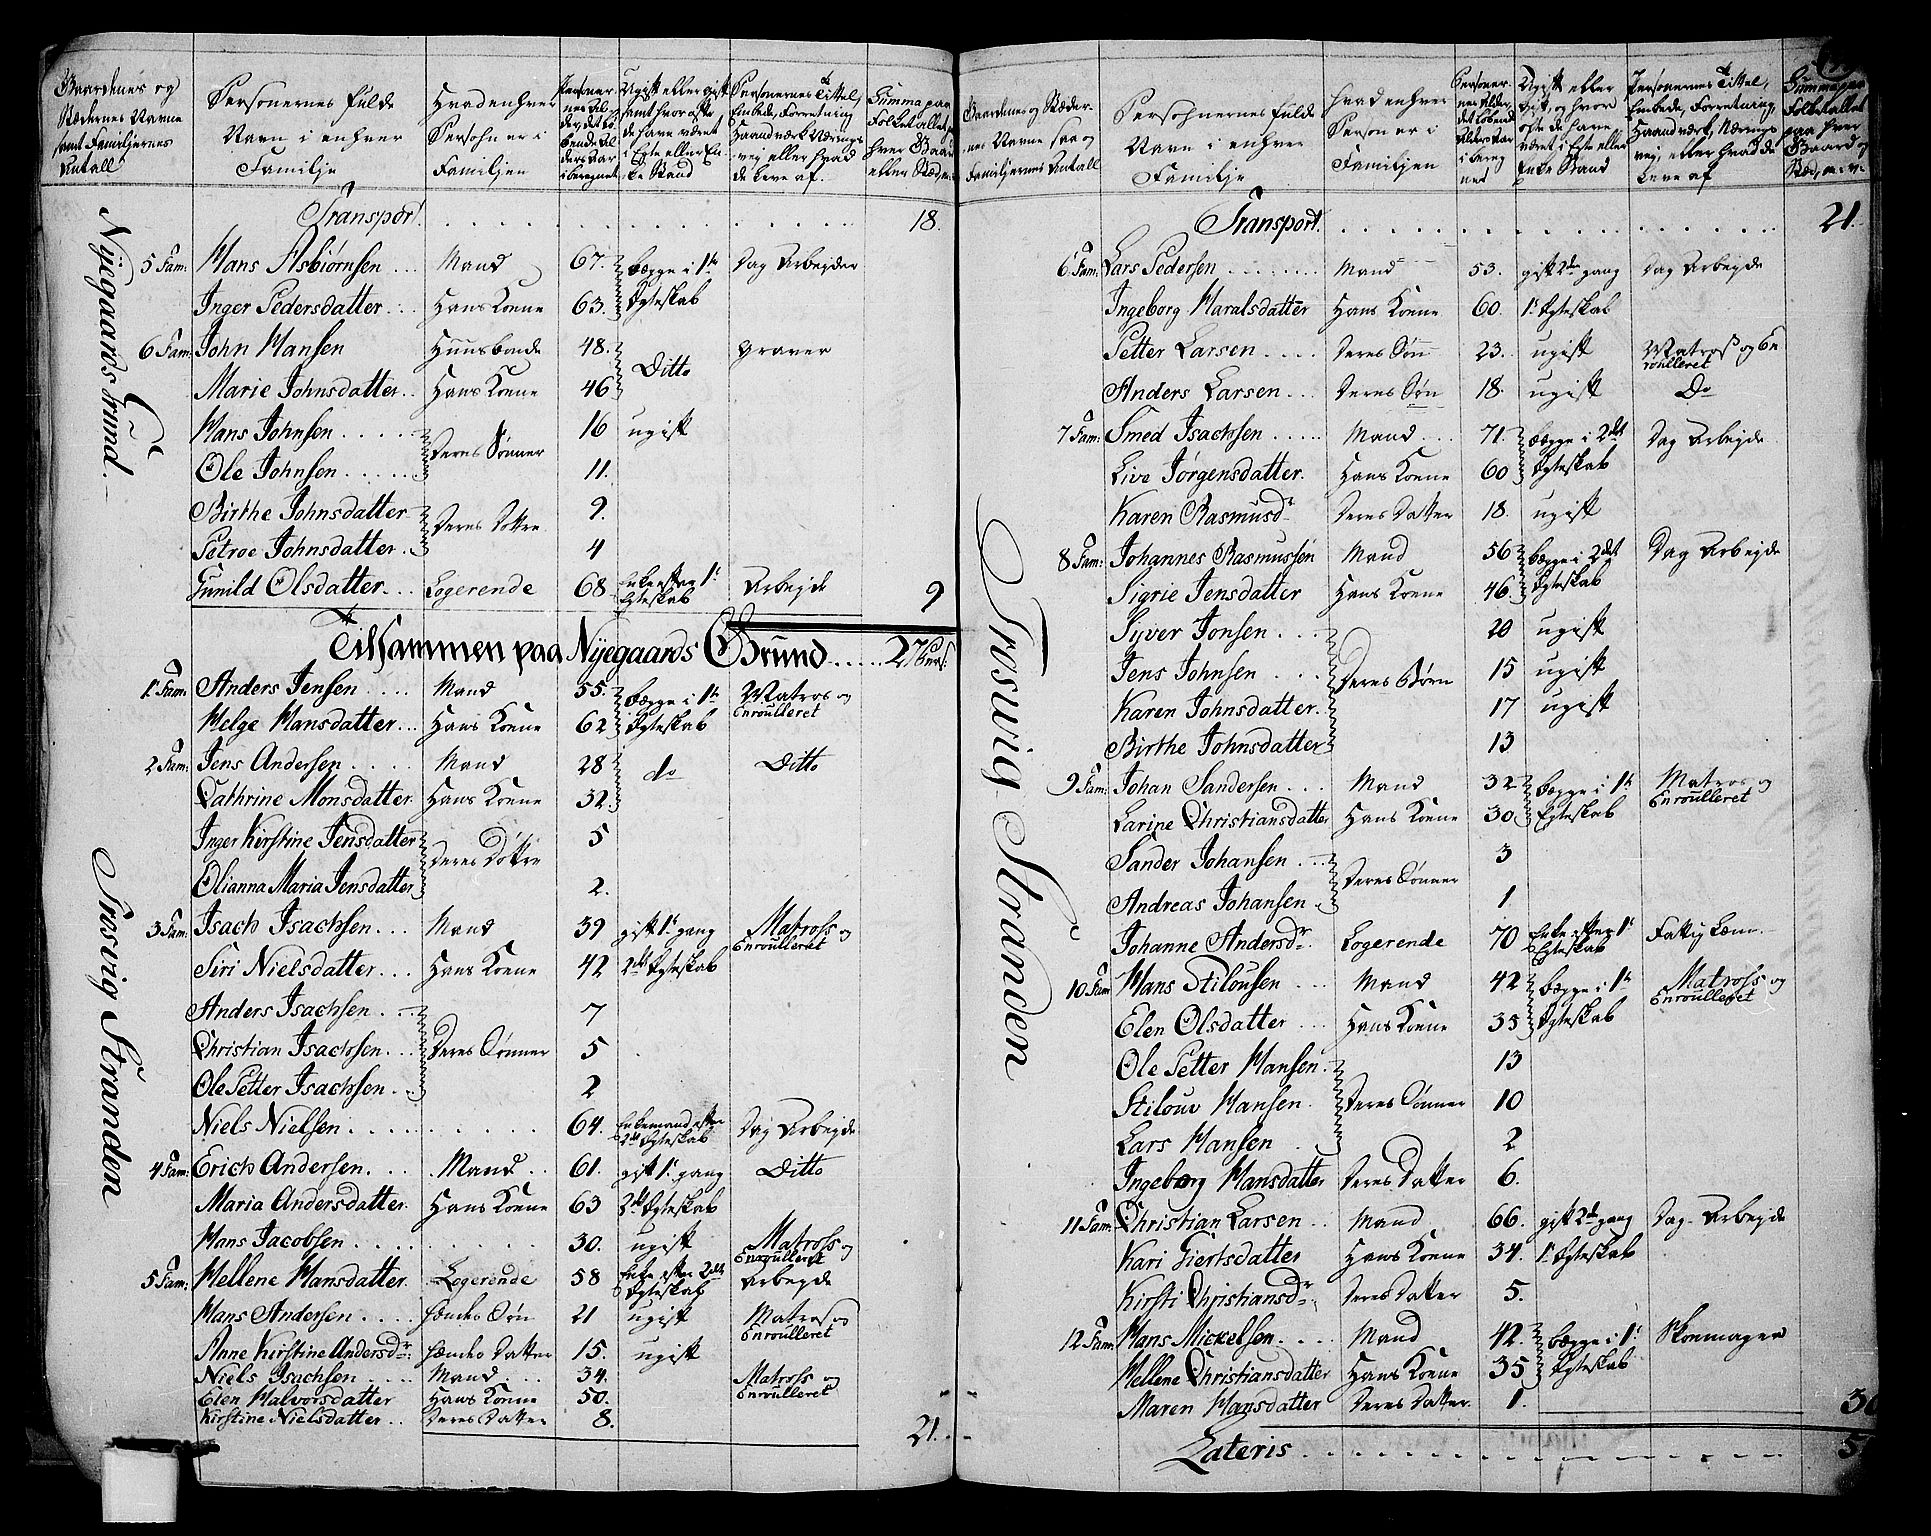 Gaardenes og
Stædernes Navne
samt Familjernes
Antall
Personernes fulde
Navn i enhver
Familje
Hvad enhver
Persohn er i
Familjen
Ugift eller gift
samt hvor ofte
de have været
i Egte eller En-
ke Stand
Personernes Tittel,
Embede, Forretning
Haandværk Nærings-
vej eller hvad
de leve af.
Summa paa
Folketallet
hver Gaard
eller Stæder
Nyegaards Grund.
Transport. 18.
5 Fam: Hans Asbiørnsen Mand 67. begge i 1te Dag Arbejder
Inger Pedersdatter Hans Koene 63. Egteskab
6 Fam: John Hansen Huusbonde 48. Ditto graver
Marie Johnsdatter Hans Koene 46
Hans Johnsen Deres Sønner 16 ugift
Ole Johnsen 11.
Birthe Johnsdatter Deres Døttre 9.
Petroe Johnsdatter 4
Gunild Olsdatter Logerende 68 Enke efter 1te Egteskab Arbejde 9
Tilsammen paa Nyegaards Grund 27 Pers:
Trosvig Stranden
1 Fam: Anders Jensen Mand 55. begge i 1te Matros og
Helge Hansdatter Hans Koene 62 Egteskab Enroulleret
2 Fam: Jens Andersen Mand 28 do Ditto
Cathrine Monsdatter Hans Koene 32.
Inger Kirstine Jensdatter Deres Døttre 5
Olianna Maria Jensdatter 2.
3 Fam: Isach Isachsen Mand 39 gift 1te gang Matross og Enroulleret
Siri Nielsdatter Hans Koene 42 2det Egteskab
Anders Isachsen 7
Christian Isachsen Deres Sønner 5
Ole Petter Isachsen 2
Niels Nielsen 64. Enkemand efter 2det Egteskab Dag Arbejde
4 Fam: Erich Andersen. Mand 61. gift 1te gang Ditto
Maria Andersdatter Hans Koene 63 2det Egteskab
Hans Jacobsen 30. ugift Matross og Enroulleret
5 Fam: Hellene Hansdatter Logerende 58 Enke efter 2det Egteskab Arbejde
Hans Andersen hendes Søn 21 ugift Matros og Enroulleret
Anne Kirstine Andersdr hendes Datter 15. ugift
Niels Isachsen Mand 34. Matross og Enroulleret
Elen Halvorsdatter Hans Koene 50.
Kirstine Nielsdatter Deres Datter 8. 21.
Gaardenes og Stæder-
nes Navne saa og
Familjernes Antall
Persohnernes fulde
Navn i enhver
Familje
Hvad enhver
Person er i
Familjen
Ugift eller
Gift, og hvor
ofte de have
været i Egte eller
Enke Stand
Personernes Tittel,
Embede, Forretning,
Haandværk, Nærings
vej, eller hvad de
leve af
Summa paa
Folketallet
paa hver
Gaard og
Sted, m: v:
Trosvig Stranden
Transport. 21.
6 Fam: Lars Pedersen Mand 53. gift 2de gang Dag Arbejde
Ingeborg Haralsdatter Hans Koene 60. 1te Egteskab
Petter Larsen Deres Søn 23. ugift Matross og Enroulleret
Anders Larsen Deres Søn 18. ugift Do
7 Fam: Smed Isachsen Mand 71. begge i 2det Dag Arbejde
Live Jørgensdatter. Hans Koene 60 Egteskab
Karen Rasmusdr Deres Datter 18. ugift
8 Fam: Johannes Rasmussen Mand 56 begge i 2det Dag Arbejde
Sigrie Jensdatter Hans Koene 46 Egteskab
Syver Jonsen 20 ugift
Jens Johnsen Deres Børn 15 ugift
Karen Johnsdatter. 17 ugift
Birthe Johnsdatter 13
9 Fam: Johan Sandersen Mand 32 begge i 1te Matros og
Larine Christiansdatter Hans Koene 30 Egteskab Enroulleret
Sander Johansen Deres Sønner 3
Andreas Johansen 1
Johanne Andersdr Logerende 70 Enke efter 1te Egteskab Fattig Lem.
10 Fam Hans Stilousen Mand 42 begge i 1te Matross og
Elen Olsdatter Hans Koene 35 Egteskab Enroulleret
Ole Petter Hansen. 13
Stilouv Hansen. Deres Sønner 10
Lars Hansen 2
Ingeborg Hansdatter Deres Datter 6.
11 Fam: Christian Larsen Mand 66. gift 2de gang Dag Arbejde
Kari Giertsdatter Hans Koene 34. 1te Egteskab
Kirsti Christiansdr Deres Datter 5.
12 Fam: Hans Mickelsen. Mand 42. begge i 1te Skoemager
Hellene Christiansdatter Hans Koene 35 Egteskab
Maren Hansdatter Deres Datter. 1.
Lateris